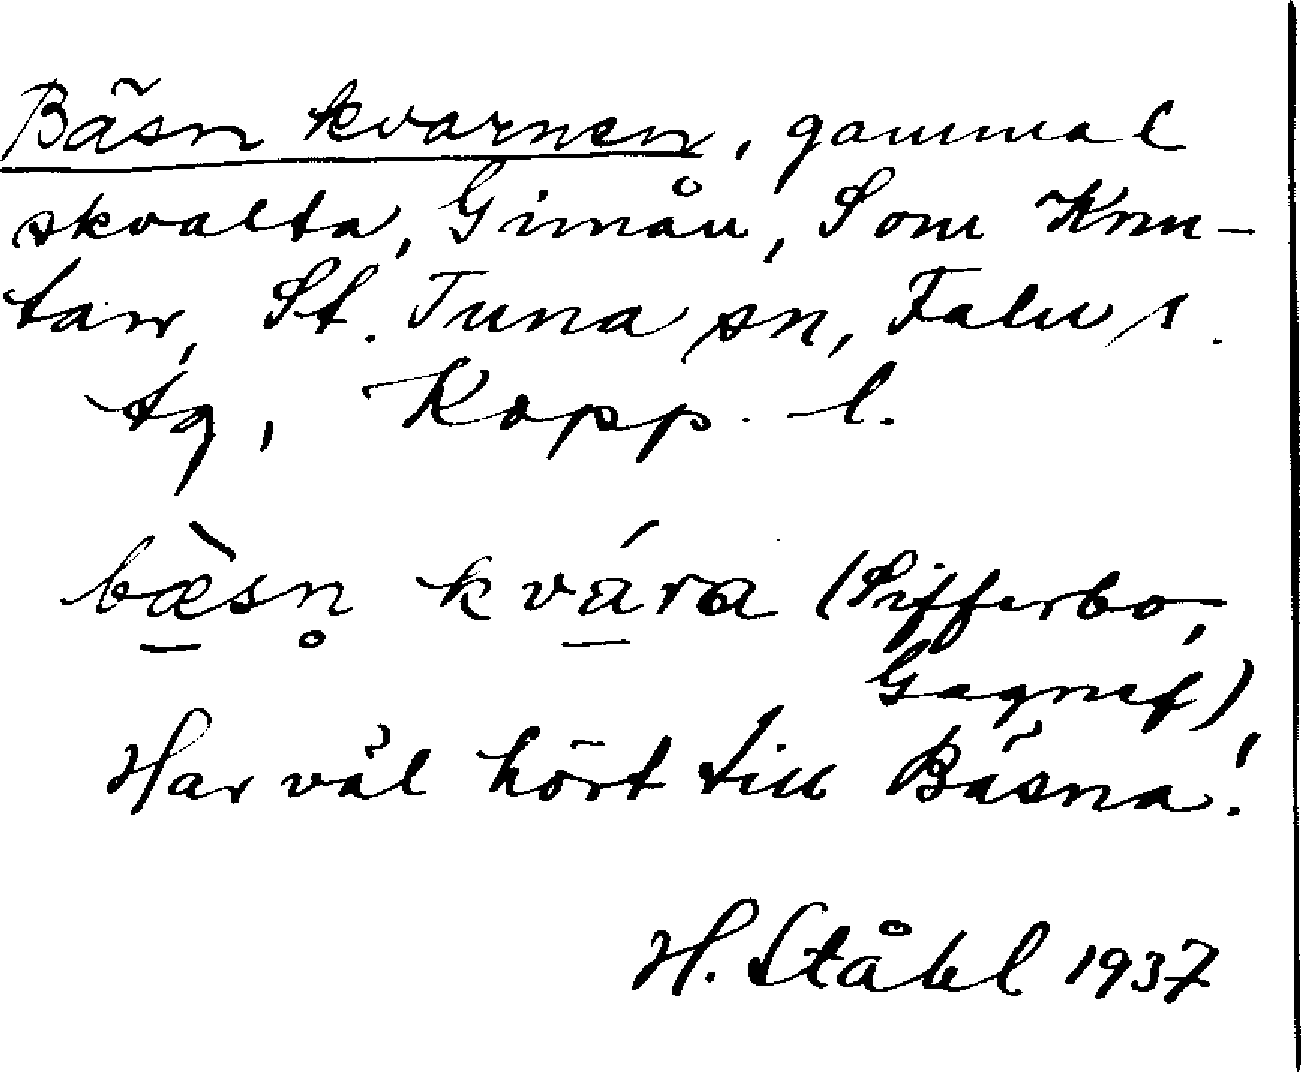 Bäsn kvarnen, gammal
skvalta, Gimån, Som Knu-
tar, St. Tuna sn, Falu s.
tg, Kopp. l.
bæ̀sn̥ kvára (Sifferbo,
Gagnef),
Har väl hört till Bäsna!
H. Ståhl 1937